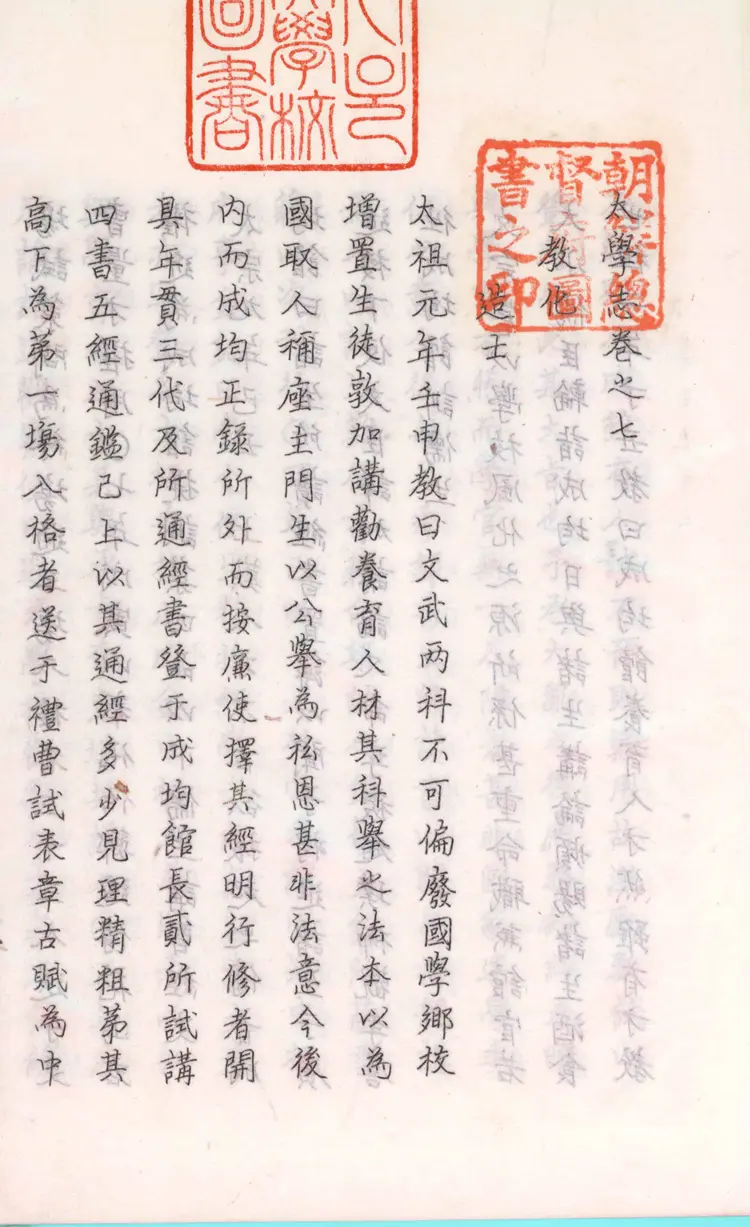 太學志卷之七
教化
造士
太祖元年壬申教曰文武两科不可偏廢國學鄉校
增置生徒敦加講勸養育人材其科舉之法本以為
國取人稱座主門生以公舉為私恩甚非法意今後
內而成均正錄所外而按廉使擇其經明行修者開
具年貫三代及所通經書登于成均館長貳所試講
四書五經通鑑已上以其通經多少見理精粗苐其
高下為苐一塲入格者送于禮曹試表章古賦為中
朝鮮總
督府圖
書之印
學校
圖書